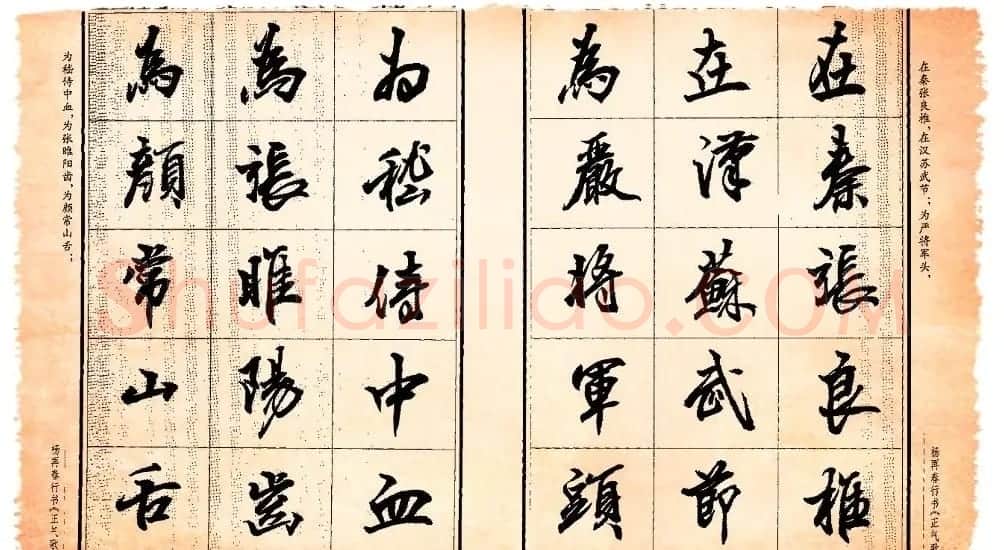 在秦张良椎，在汉苏武节；为严将军头，
在秦張良椎
在漢蘇武節
為嚴將軍頭
杨再春行书《正气歌
為嵇侍中血
為張睢陽齒
為顏常山舌
为嵇侍中血，为张睢阳齿，为颜常山舌；
杨再春行书《正气歌
Shufaziliao.com